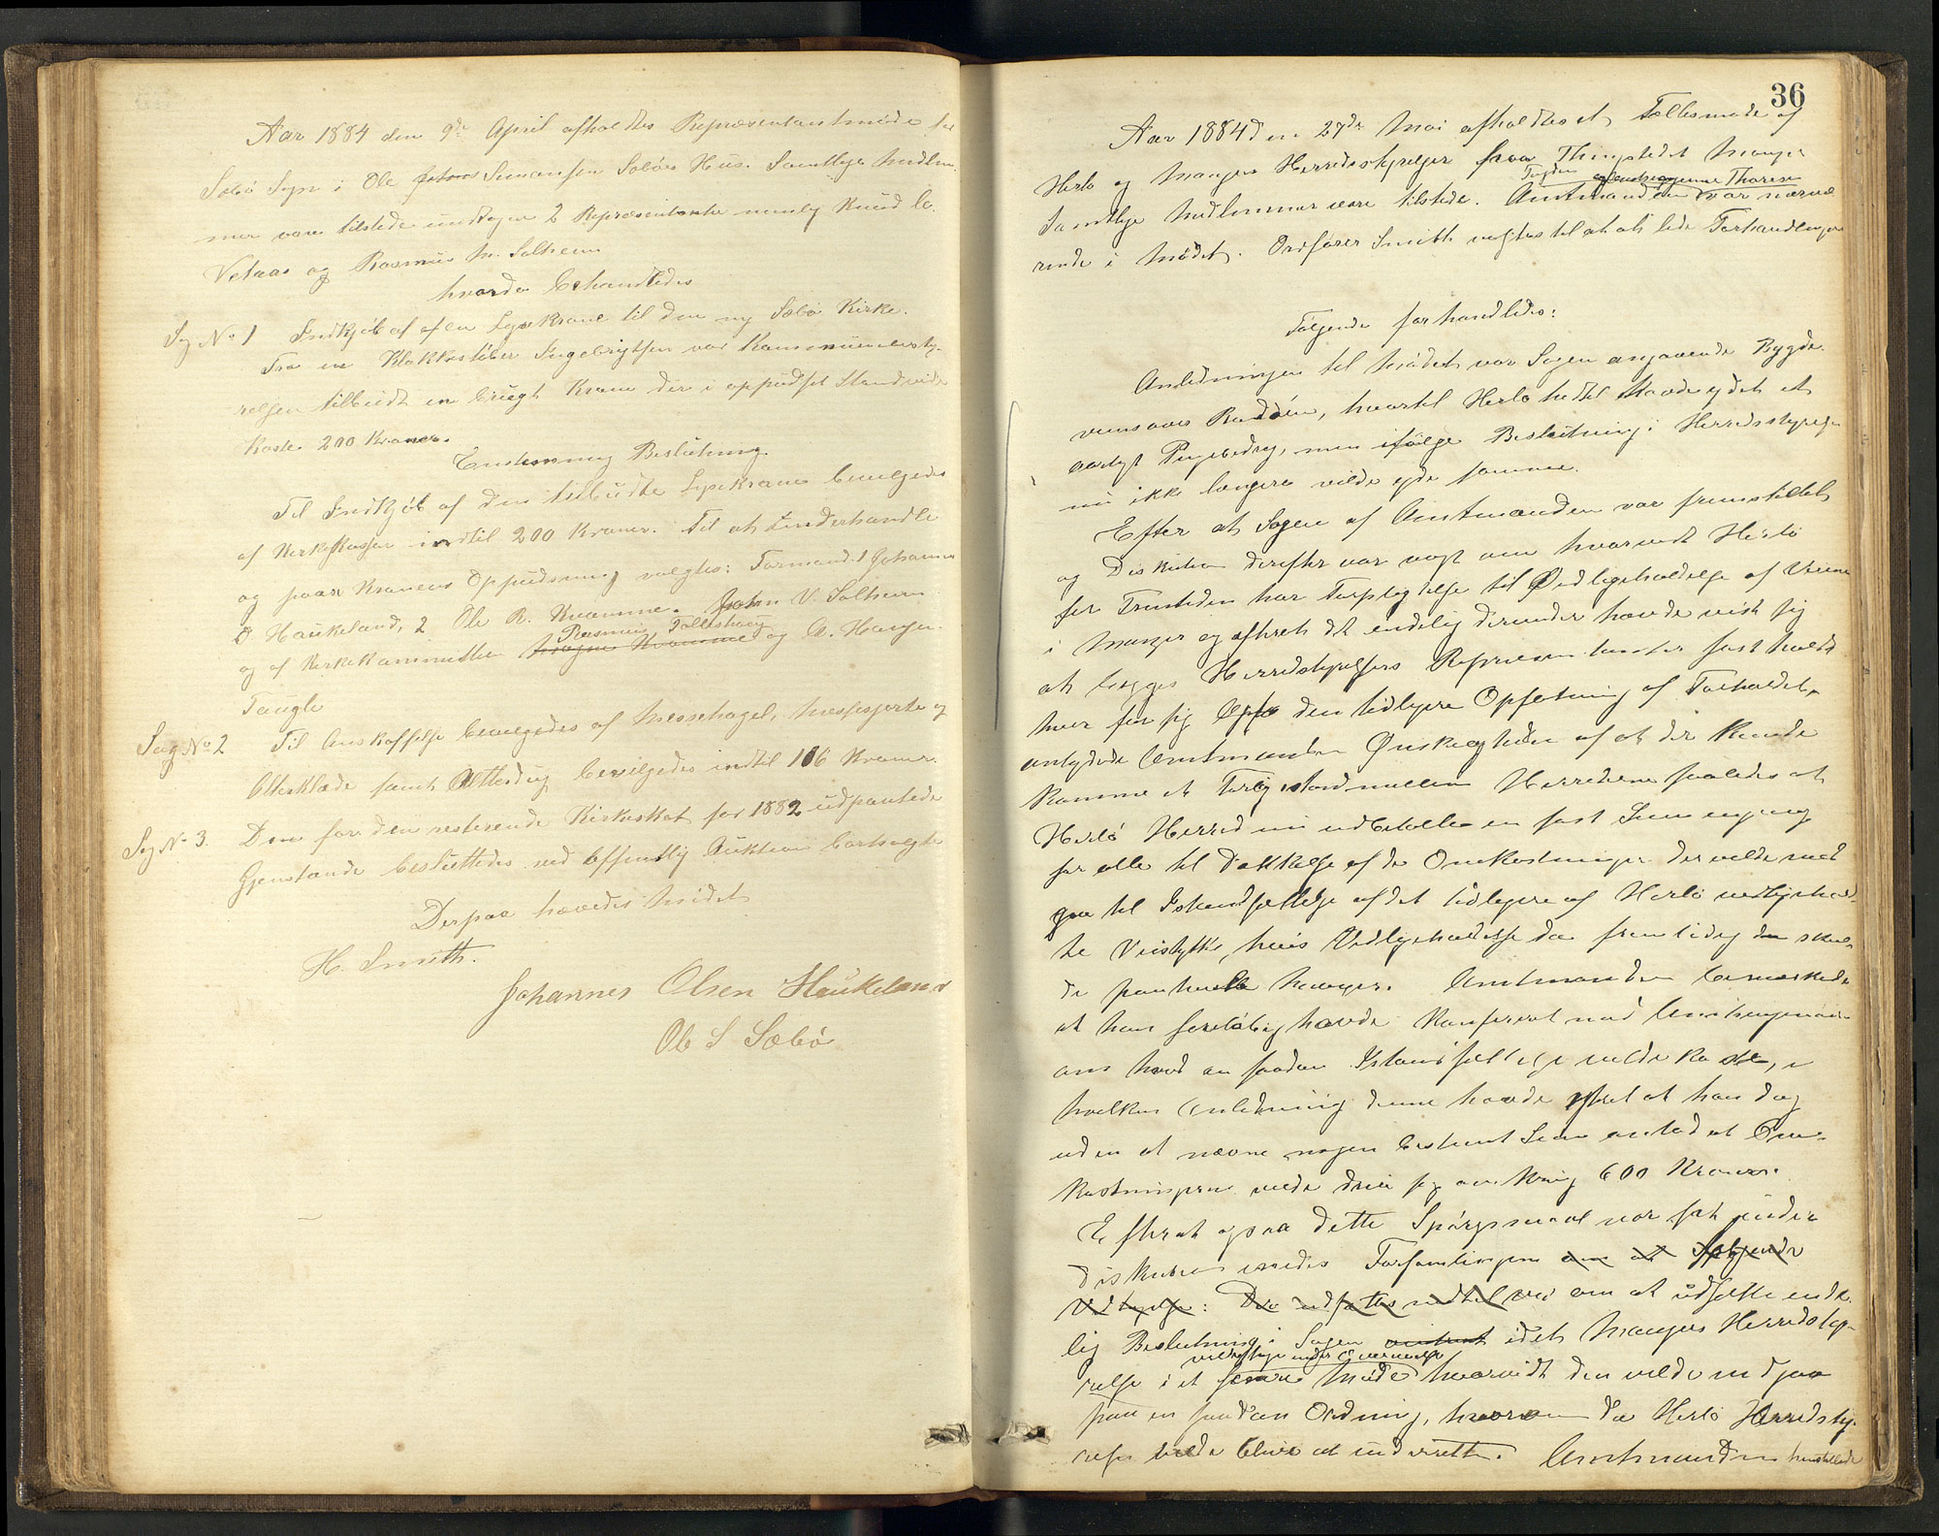 Aar 1884 den 9de April afholdtes Repræsentantmöde for
Sæbö Sogn i Ole Simonsen Sæböes Hus. Samtlige Medlem-
mer vare tilstede undtagen 2 Repræsentanter nemlig Knud
Vetaas og Rasmus M. Solheim
hvorda behandledes
Sag No 1 Indkjöb af en Lysekrone til den ny Sæbö Kirke.
Fra en Klokkestöber Ingebrigtsen var Kommunebesty-
relsen tilbudt en brugt Krone der i oppudset Stand vilde
koste 200 Kroner.
Enstemmig Beslutning.
Til Indkjöb af den tilbudte Lysekrone bevilgedes
af Kirkekassen indtil 200 Kroner. Til at underhandle
og paase Kronens Oppudsning valgtes: Formand. 1 Johannes
O Haukeland, 2 Ole R. Kvamme. John V. Solheim
Rasmus Tolleshaug
og af Kirkekommitteen Mogns Kvamme og A. Haugen.
Taugle
Sag No 2 Til Anskaffelse bevilgedes af Messehagel, Messesjorte og
Alterklæde samt Alterdug bevilgedes indtil 106 Kroner.
Sag No 3. De for den resterende Kirkeskat for 1882 udpantede
Gjenstande besluttedes ved offentlig Auktion bortsolgte
Derpaa hævedes Mödet
H. Smith.
Johannes Olsen Haukeland
Ole S Sæbö
36
Aar 1884 den 27de Mai afholdtes et Fællesmöde af
Herlö og Mangers Herredsstyrelser paa Thingstedet Manger
Fogden Thoresen
Samtlige Medlemmer vare tilstede. Amtmanden var nærvæ-
rende i Mödet. Ordförer Smith valgtes til at lede Forhandlingerne
Følgende forhandledes:
Anledningen til Mödet var Sagen angaaende Bygde-
veien over Radöen, hvortil Herlö hidtil havde ydet et
aarligt Pengebidrag, men ifölge Beslutning i Herredsstyrelsen
nu ikke længere vilde yde samme.
Efter at Sagen af Amtmanden var fremstillet
og Diskution derefter var om hvorvidt Herlö
for Fremtiden har Forpligtelse til Vedligeholdelse af Veiene
i Manger og efterat det endelig derunder havde vist sig
at begges Herredsstyrelsers Repræsentanter fastholdt
hver for sig den tidligere Opfatning af Forholdet,
antydede Amtmanden Önskeligheden af at der kunde
komme et Forlig istand mellem Herrederne saaledes at
Herlö Herred nu udbetalte en fast Sum engang
for alle til Dækkelse af de Omkostninger der vilde med-
gaa til Istandsættelse af det tidligere af Herlö vedligehold-
te Veistykke, hvis Vedligeholdelse da fremtidig skul-
de paahvile Manger. Amtmanden bemærkede
at han foreløbig havde konfereret med Amtsingeniören
om hvad en saadan Istandsættelse vilde koste, i
hvilken Anledning denne havde yttret at han dog
uden at nævne nogen bestemt Sum antod at Om-
kostningerne vilde dreie sig omkring 600 Kroner.
Efterat ogsaa dette Spörgsmaal var sat under
diskution enedes Forsamlingen om at fölgende
Vedtagelse: Der udsættes indtil vi om at udsætte ende-
lig Beslutning i Sagen idet Mangers Herredssty-
relse i et senere Möde hvorvidt den vilde indgaa
paa en saadan Ordning, hvorom da Herlö Herredssty-
relse vilde blive at underrette. Amtmanden henstillede